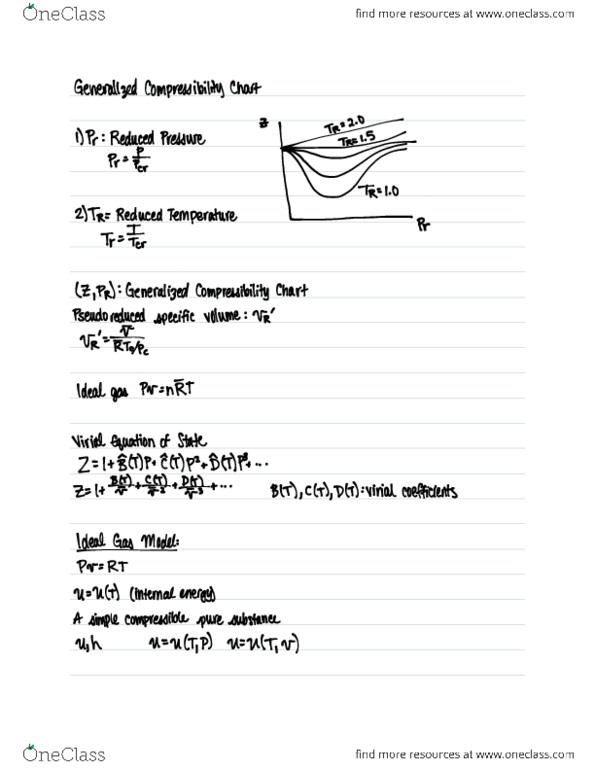 OneClass
find more resources at www.oneclass.com
Generalized Compressibility Chart
1) Pr: Reduced Pressure
Pr = P/Pcr
Z
TR=2.0
TR=1.5
TR=1.0
Pr
2) TR= Reduced Temperature
Tr = T/Tcr
(Z, PR): Generalized Compressibility Chart
Pseudo reduced specific volume: vR'
vR' = v̄/(R̄Tc/Pc)
Ideal gas Pv=nR̄T
Virial Equation of State
Z=1+B̂(T)P+Ĉ(T)P²+D̂(T)P³+...
Z=1+B(T)/v̄+C(T)/v̄²+D(T)/v̄³+... B(T), C(T), D(T): virial coefficients
Ideal Gas Model:
Pv=RT
u=u(T) (internal energy)
A simple compressible pure substance
u,h u=u(T,P) u=u(T,v)
OneClass
find more resources at www.oneclass.com